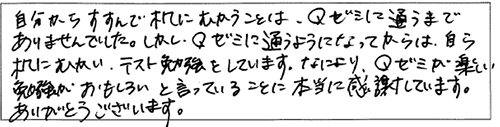 自分からすすんで机にむかうことは、Qゼミに通うまで
ありませんでした。しかし、Qゼミに通うようになってからは、自ら
机にむかい、テスト勉強をしています。なにより、Qゼミが楽しい
勉強がおもしろいと言っていることに本当に感謝しています。
ありがとうございます。